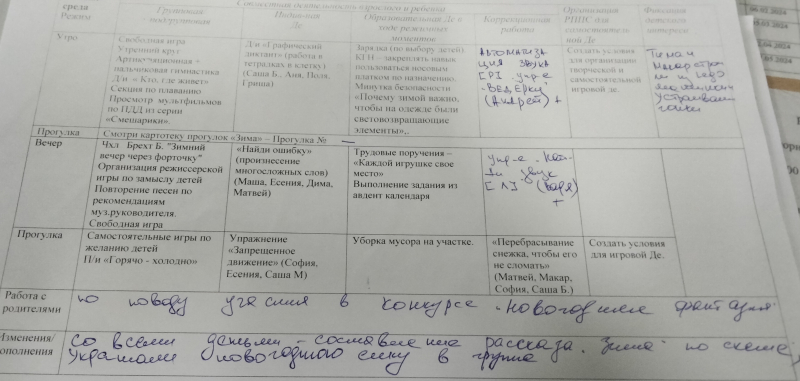 среда
Режим
Совместная деятельность взрослого и ребенка
Групповая
подгрупповая
Де
Образовательная Де в
ходе режимных
моментов
Коррекционная
работа
Организация
РППС для
самостоятель
ной Де
детского
интереса
Утро
Свободная игра
Утренний круг
Артикуляционная +
пальчиковая гимнастика
Д/и « Кто, где живет»
Секция по плаванию
Просмотр мультфильмов
по ПДД из серии
«Смешарики».
Д/и «Графический
диктант» (работа в
тетрадках в клетку)
(Саша Б., Аня, Пола,
Гриша)
Зарядка (по выбору детей)
КГН – закреплять навык
пользоваться носовым
платком по назначению.
Минутка безопасности
«Почему зимой важно,
чтобы на одежде были
световозвращающие
элементы»,.
Автоматиза
ция звука
[Р] упр-е
"Ведерку"
(Андрей) +
Создать условия
для организации
творческой и
самостоятельной
игровой де.
Тиман
Прогулка
Смотри картотеку прогулок «Зима» – Прогулка № —
Вечер
Чхл Брехт Б. "Зимний
вечер через форточку"
Организация режиссерской
игры по замыслу детей
Повторение песен по
рекомендациям
муз.руководителя.
Свободная игра
«Найди ошибку»
(произнесение
многосложных слов)
(Маша, Есения, Дима,
Матвей)
Трудовые поручения –
«Каждой игрушке свое
место»
Выполнение задания из
авдент календаря
упр-е
звук
[Л] (Варя)
+
Прогулка
Самостоятельные игры по
желанию детей
П/и «Горячо - холодно»
Упражнение
«Запрещенное
движение» (София,
Есения, Саша М)
Уборка мусора на участке.
«Перебрасывание
снежка, чтобы его
не сломать»
(Матвей, Макар,
София, Саша Б.)
Создать условия
для игровой Де.
Работа с
родителями
по поводу участия в конкурсе "новогодние фантазии"
Изменения/
дополнения
со всеми детьми - составление рассказа "Зима" по схеме,
Украшали новогоднюю елку в группе